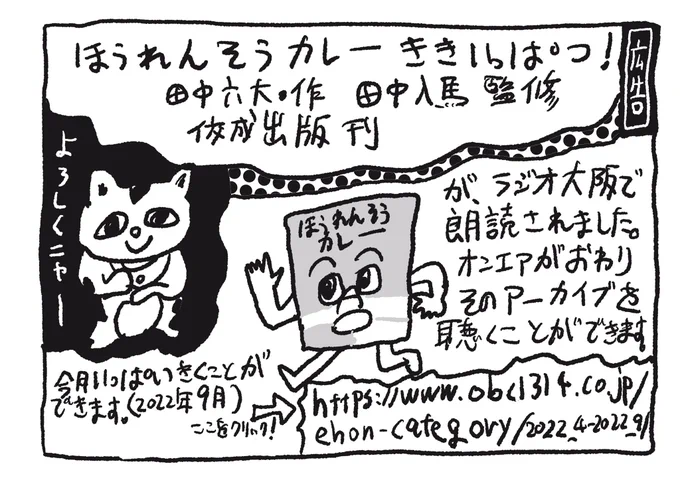 ほうれんそうカレー ききいっぱつ!
広告
田中六大・作 田中入馬 監修
佼成出版 刊
よろしくニャー
ほうれんそう
カレー
が、ラジオ大阪で
朗読されました。
オンエアがおわり
そのアーカイブを
聴くことができます
今月いっぱいきくことが
できます。(2022年9月)
ここをクリック!
https://www.obc1314.co.jp/
ehon-category/2022_4-2022_9/